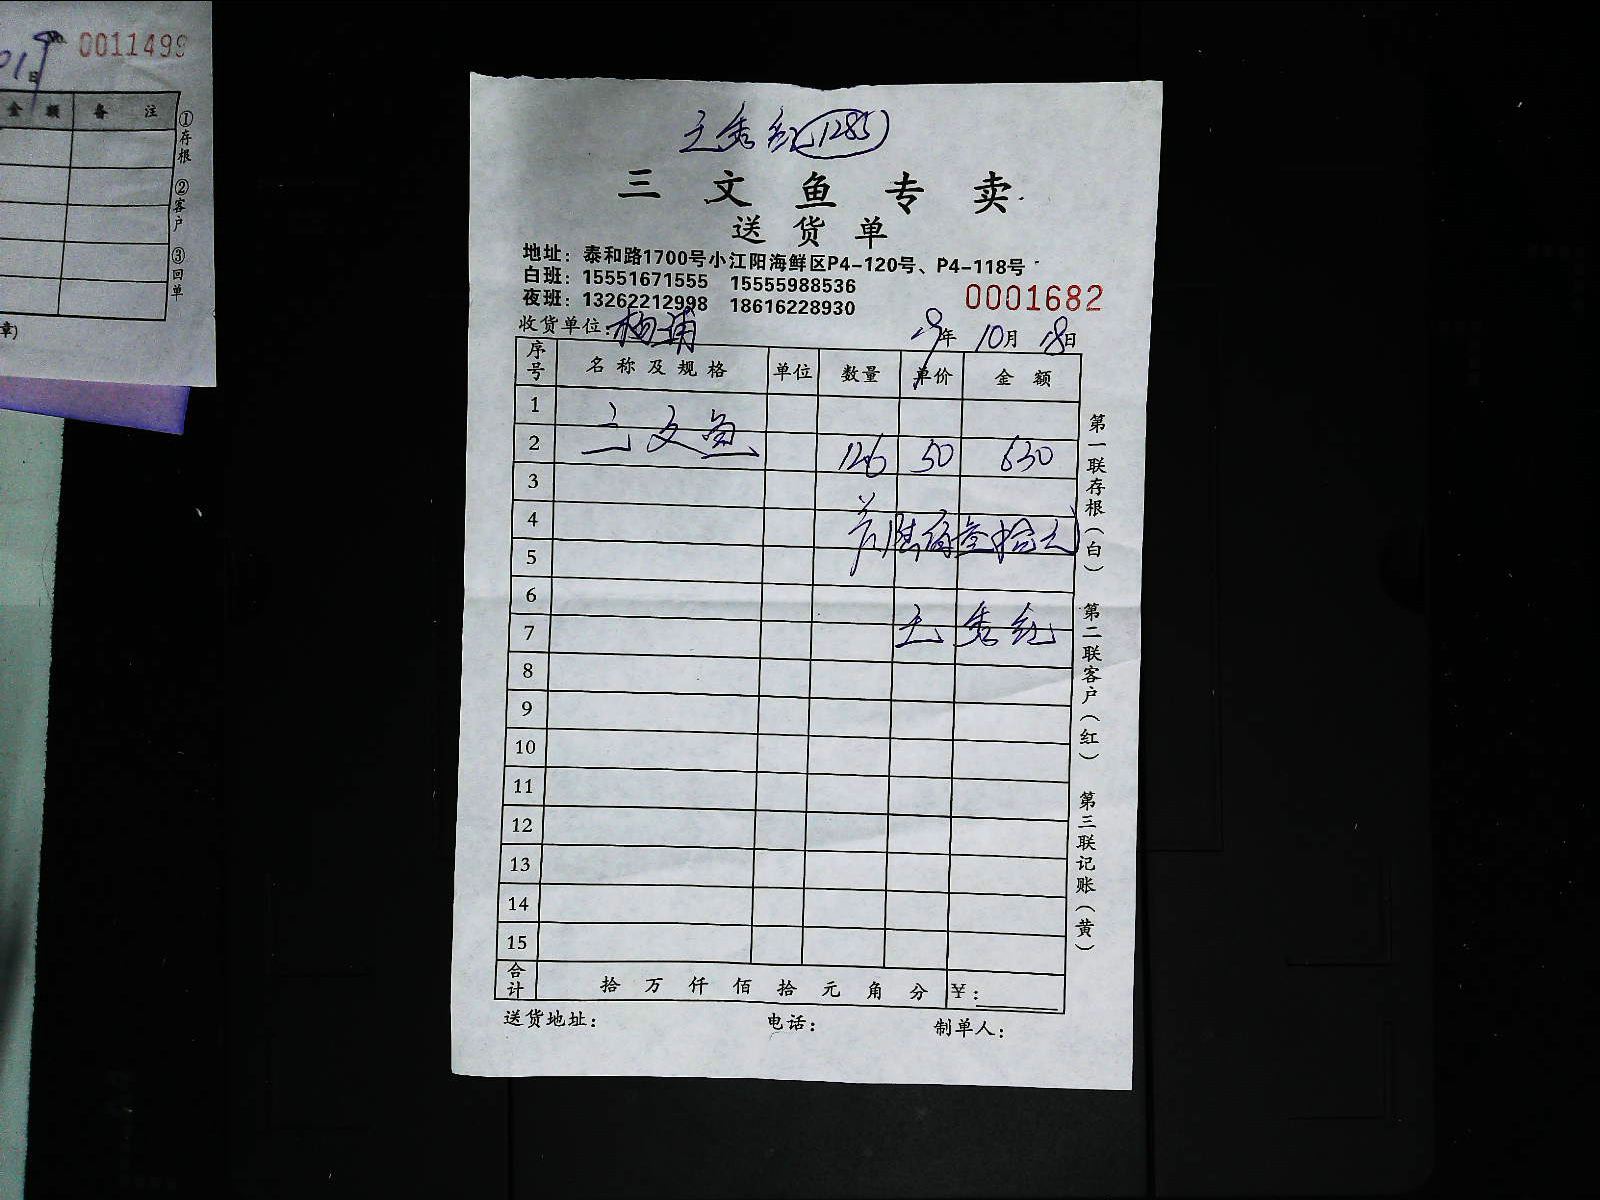 0011499
金额 备注
①存根 ②客户 ③回单
章)
王秀红 1285
三文鱼专卖
送货单
地址：泰和路1700号小江阳海鲜区P4-120号、P4-118号
白班：15551671555 15555988536
夜班：13262212998 18616228930
0001682
收货单位：杨浦 19年10月18日
序号 名称及规格 单位 数量 单价 金额
1
2 三文鱼 126 50 630
3
4 陆佰叁拾元
5
6
7 王秀红
8
9
10
11
12
13
14
15
合计 拾 万 仟 佰 拾 元 角 分 ¥：
送货地址： 电话： 制单人：
第一联存根（白） 第二联客户（红） 第三联记账（黄）